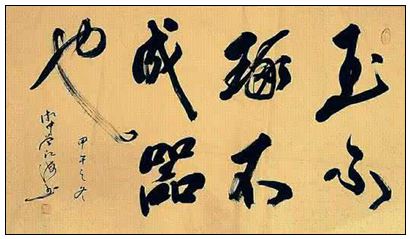 玉不
琢不
成器
也
甲午之冬